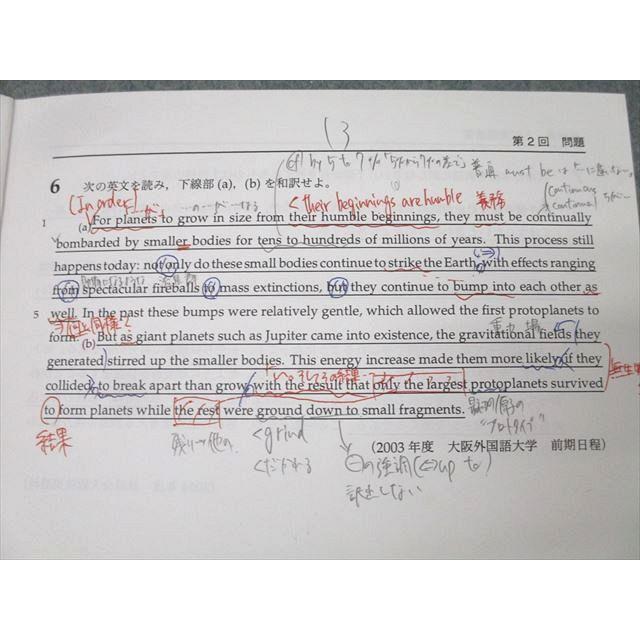 13
第2回 問題
6 次の英文を読み，下線部(a)，(b)を和訳せよ。
(In order)
< their beginnings are humble 義務
1 (a)For planets to grow in size from their humble beginnings, they must be continually
bombarded by smaller bodies for tens to hundreds of millions of years. This process still
happens today: not only do these small bodies continue to strike the Earth, with effects ranging
from spectacular fireballs to mass extinctions, but they continue to bump into each other as
5 well. In the past these bumps were relatively gentle, which allowed the first protoplanets to
重力場
form. (b)But as giant planets such as Jupiter came into existence, the gravitational fields they
generated stirred up the smaller bodies. This energy increase made them more likely, if they
collided, to break apart than grow, with the result that only the largest protoplanets survived
to form planets while the rest were ground down to small fragments.
結果
< grind
<だかれる
(2003年度 大阪外国語大学 前期日程)
の強調 (⇔up to)
訳出しない